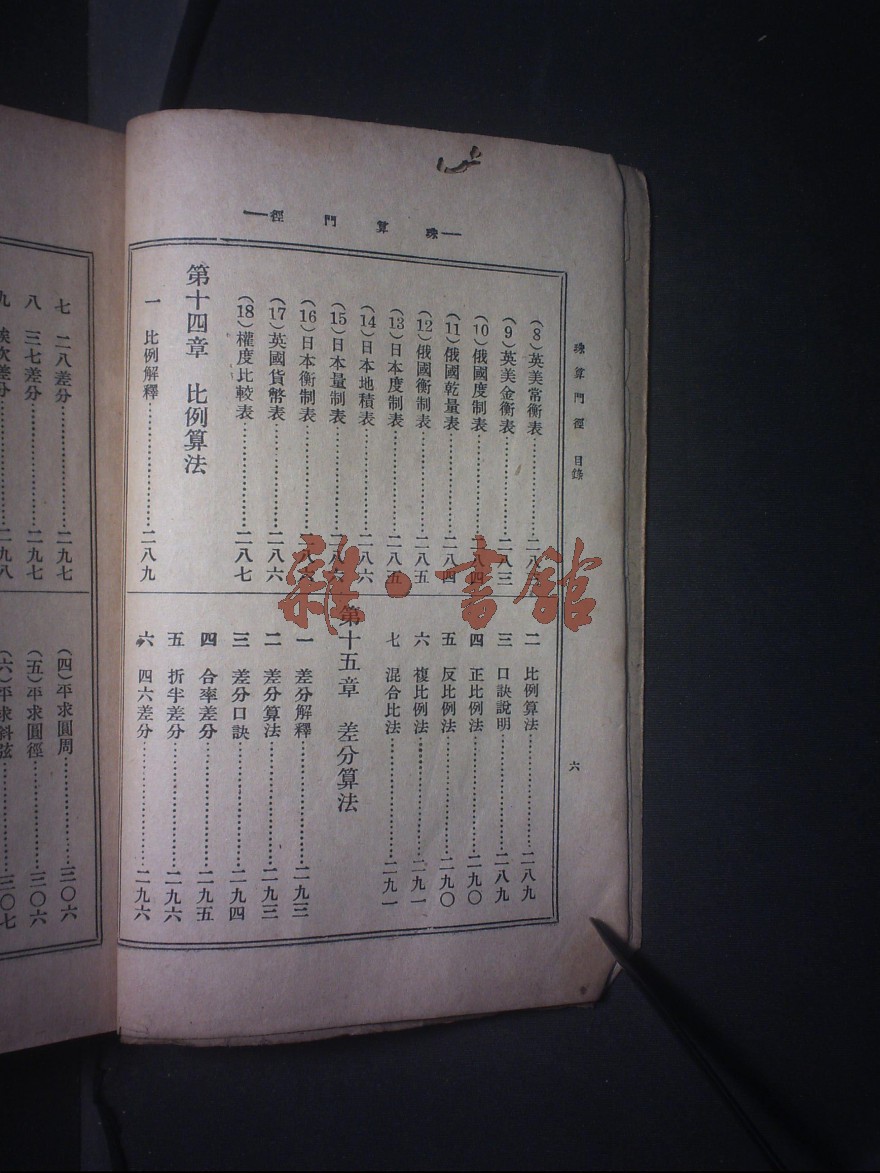 珠算門徑
珠算門徑 目錄
六
(8)英美常衡表
(9)英美金衡表……二八三
(10)俄國度制表……二八四
(11)俄國乾量表……二八四
(12)俄國衡制表……二八五
(13)日本度制表……二八五
(14)日本地積表……二八六
(15)日本量制表……二八六
(16)日本衡制表……二八六
(17)英國貨幣表……二八六
(18)權度比較表……二八七
第十四章 比例算法
一 比例解釋……二八九
二 比例算法……二八九
三 口訣說明……二八九
四 正比例法……二九〇
五 反比例法……二九〇
六 複比例法……二九一
七 混合比法……二九一
第十五章 差分算法
一 差分解釋……二九三
二 差分算法……二九三
三 差分口訣……二九四
四 合率差分……二九五
五 折半差分……二九六
六 四六差分……二九六
七 二八差分……二九七
八 三七差分……二九七
九 差分……二九八
(四)平求圓周……三〇六
(五)平求圓徑……三〇六
(六)平求斜弦……三〇七
雜·書館